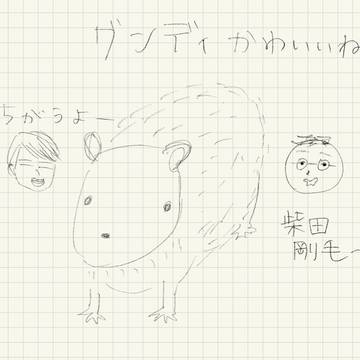 グンディかわいいね
ちがうよー
柴田
剛毛~